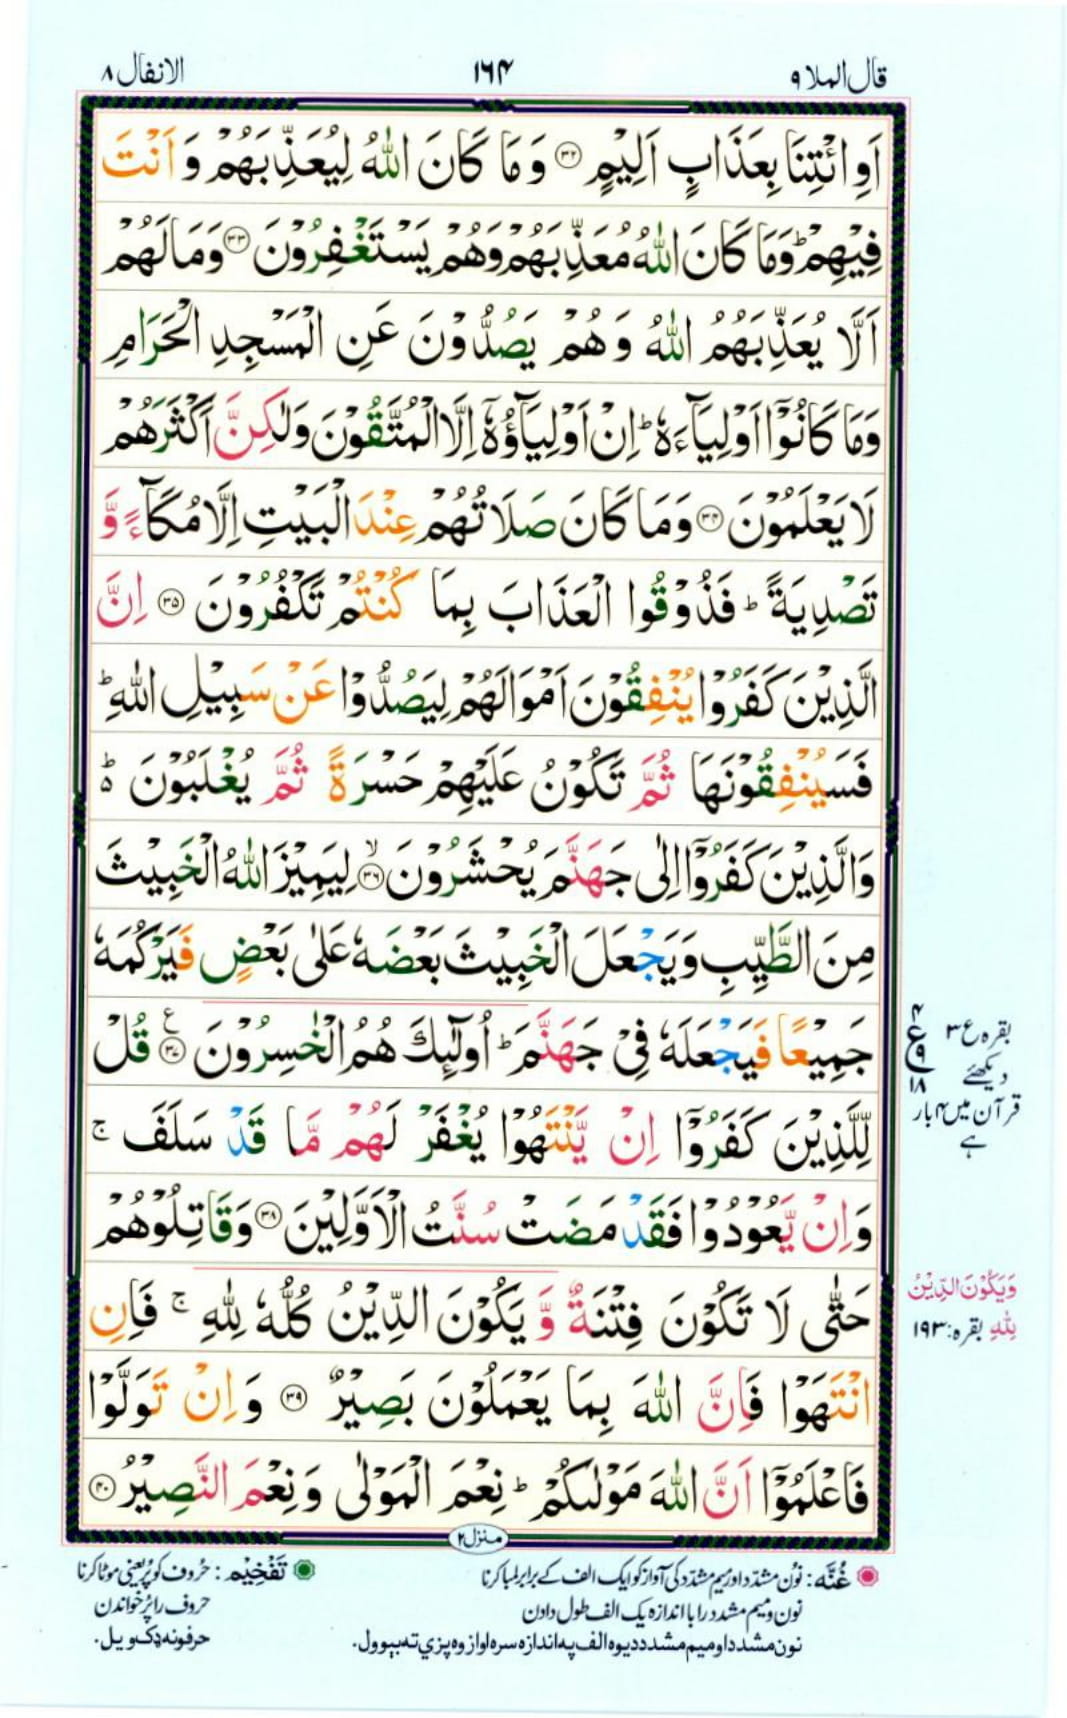 قال الملا ۹
۱۶۴
الانفال ۸
اَوِ ائْتِنَا بِعَذَابٍ اَلِيْمٍ ۝۳۲ وَمَا كَانَ اللّٰهُ لِيُعَذِّبَهُمْ وَ اَنْتَ
فِيْهِمْ ؕ وَمَا كَانَ اللّٰهُ مُعَذِّبَهُمْ وَهُمْ يَسْتَغْفِرُوْنَ ۝۳۳ وَمَا لَهُمْ
اَلَّا يُعَذِّبَهُمُ اللّٰهُ وَهُمْ يَصُدُّوْنَ عَنِ الْمَسْجِدِ الْحَرَامِ
وَمَا كَانُوْۤا اَوْلِيَآءَهٗ ؕ اِنْ اَوْلِيَآؤُهٗۤ اِلَّا الْمُتَّقُوْنَ وَلٰكِنَّ اَكْثَرَهُمْ
لَا يَعْلَمُوْنَ ۝۳۴ وَمَا كَانَ صَلَاتُهُمْ عِنْدَ الْبَيْتِ اِلَّا مُكَآءً وَّ
تَصْدِيَةً ؕ فَذُوْقُوا الْعَذَابَ بِمَا كُنْتُمْ تَكْفُرُوْنَ ۝۳۵ اِنَّ
الَّذِيْنَ كَفَرُوْا يُنْفِقُوْنَ اَمْوَالَهُمْ لِيَصُدُّوْا عَنْ سَبِيْلِ اللّٰهِ ؕ
فَسَيُنْفِقُوْنَهَا ثُمَّ تَكُوْنُ عَلَيْهِمْ حَسْرَةً ثُمَّ يُغْلَبُوْنَ ؕ
وَالَّذِيْنَ كَفَرُوْۤا اِلٰى جَهَنَّمَ يُحْشَرُوْنَ ۙ۝۳۶ لِيَمِيْزَ اللّٰهُ الْخَبِيْثَ
مِنَ الطَّيِّبِ وَيَجْعَلَ الْخَبِيْثَ بَعْضَهٗ عَلٰى بَعْضٍ فَيَرْكُمَهٗ
جَمِيْعًا فَيَجْعَلَهٗ فِيْ جَهَنَّمَ ؕ اُولٰٓئِكَ هُمُ الْخٰسِرُوْنَ ۝۳۷ ع قُلْ
لِّلَّذِيْنَ كَفَرُوْۤا اِنْ يَّنْتَهُوْا يُغْفَرْ لَهُمْ مَّا قَدْ سَلَفَ ۚ
وَاِنْ يَّعُوْدُوْا فَقَدْ مَضَتْ سُنَّتُ الْاَوَّلِيْنَ ۝۳۸ وَقَاتِلُوْهُمْ
حَتّٰى لَا تَكُوْنَ فِتْنَةٌ وَّ يَكُوْنَ الدِّيْنُ كُلُّهٗ لِلّٰهِ ۚ فَاِنِ
انْتَهَوْا فَاِنَّ اللّٰهَ بِمَا يَعْمَلُوْنَ بَصِيْرٌ ۝۳۹ وَاِنْ تَوَلَّوْا
فَاعْلَمُوْۤا اَنَّ اللّٰهَ مَوْلٰىكُمْ ؕ نِعْمَ الْمَوْلٰى وَنِعْمَ النَّصِيْرُ ۝۴۰
۴
ع
۹
۱۸
بقرہ ع ۳
دیکھئے
قرآن میں ۴ بار
ہے
وَيَكُوْنَ الدِّيْنُ
لِلّٰهِ بقرہ: ۱۹۳
منزل ۲
غُنّه: نون مشدّد اور میم مشدّد کی آواز کو ایک الف کے برابر لمبا کرنا
نون و میم مشدد را با اندازہ یک الف طول دادن
نون مشدد او میم مشدد دیوه الف په اندازه سره اواز وه پزي ته بیوول.
تَفْخِيْم: حُروف کو پُر یعنی موٹا کرنا
حروف را پُر خواندن
حرفونه ډک ویل.